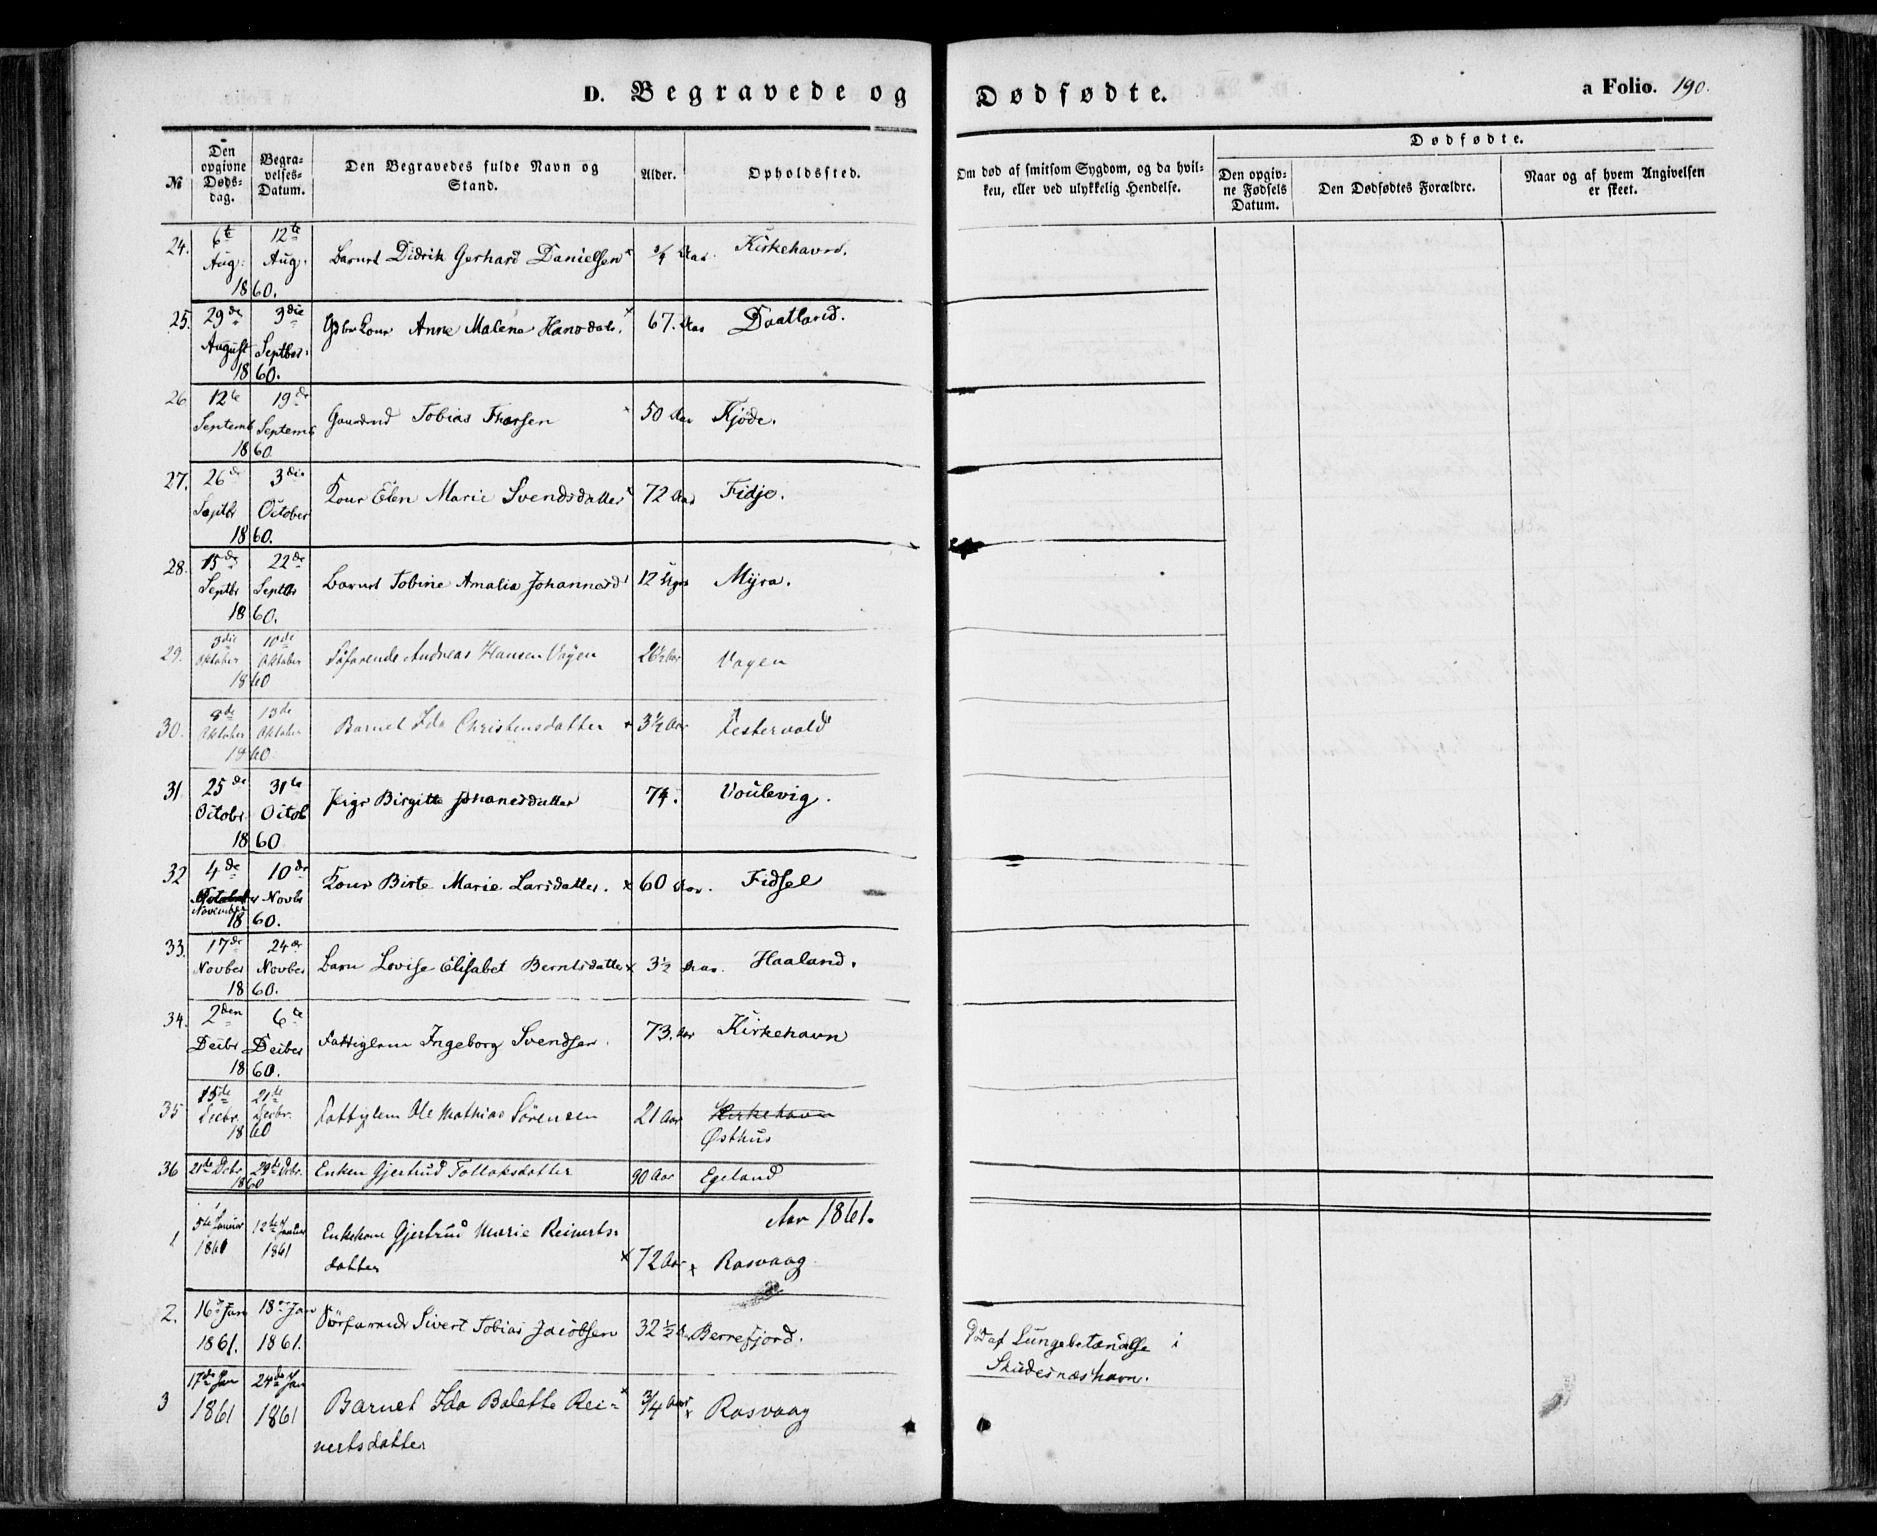 D. Begravede og Dødfødte. a Folio. 190.
№
Den opgivne Døds-dag.
Begra-velses-Datum.
Den Begravedes fulde Navn og Stand.
Alder.
Opholdssted.
Om død af smitsom Sygdom, og da hvil-ken, eller ved ulykkelig Hendelse.
Dødfødte.
Den opgiv-ne Fødsels Datum.
Den Dødfødtes Forældre.
Naar og af hvem Angivelsen er skeet.
24. 6te Aug: 12te Aug. 1860. Barnet Didrik Gerhard Danielsen Aar Kirkehavn.
25. 29de August 3die Septber. 1860. Kone Anne Malena Hansdatr. 67. Aar Daatland.
26 12te Septemb 19de Septemb 1860 Gaardmd Tobias Thorsen 50 Aar Kjøde.
27. 26de Septbr 3die October 1860. Kone Elen Marie Svendsdatter 72 Aar Fidje.
28. 15de Septbr 22de Septbr 1860. Barnet Tobine Amalia Johannesd 12 Uger Myra.
29. 3die Oktober 10de Oktober 1860 Søfarende Andreas Hansen Vågen 26½ Aar Vagen
30. 8de Oktober 13de Oktober 1860 Barnet Ida Christensdatter x 3½ Aar Testervold
31 25de Octobr. 31te Octob 1860 Birgitte Johanesdatter 74. Voulevig.
32 4de November 10de Novbr 1860. Kone Birte Marie Larsdatter. x 60 Aar. Fidsel
33. 17de Novber 24de Novber 1860. Barn Lovise Elisabet Berntsdatter x 3½ Aar. Haaland.
34. 2den Decbr 6te Decber 1860. Fattiglem Ingeborg Svendsen. 73. Aar Kirkehavn
35 15de Decbr. 21de Decbr. 1860 Fattiglem Ole Mathias Sörensen 21 Aar Kirkehavn
Østhus
36 21te Dcbr. 29te Dcbr. 1860 Enken Gjertrud Tollaksdatter 90 Aar Egeland
Aar 1861.
1 5te Januar 1860 12te Januar 1861 Enkekone Gjertrud Marie Reinerts-
datter x 72 Aar x Rasvaag
2. 16de Jan 1861. 18de Jan 1861. Sivert Tobias Jacobsen 32½ Aar Berrefjord. Død af Lungebetændelse i
Skudesnæshavn.
3 17de Jan 1861 24de Jan 1861 Barnet Ida Bolette Rei-
nertsdatter x ¾ Aar x Rasvaag